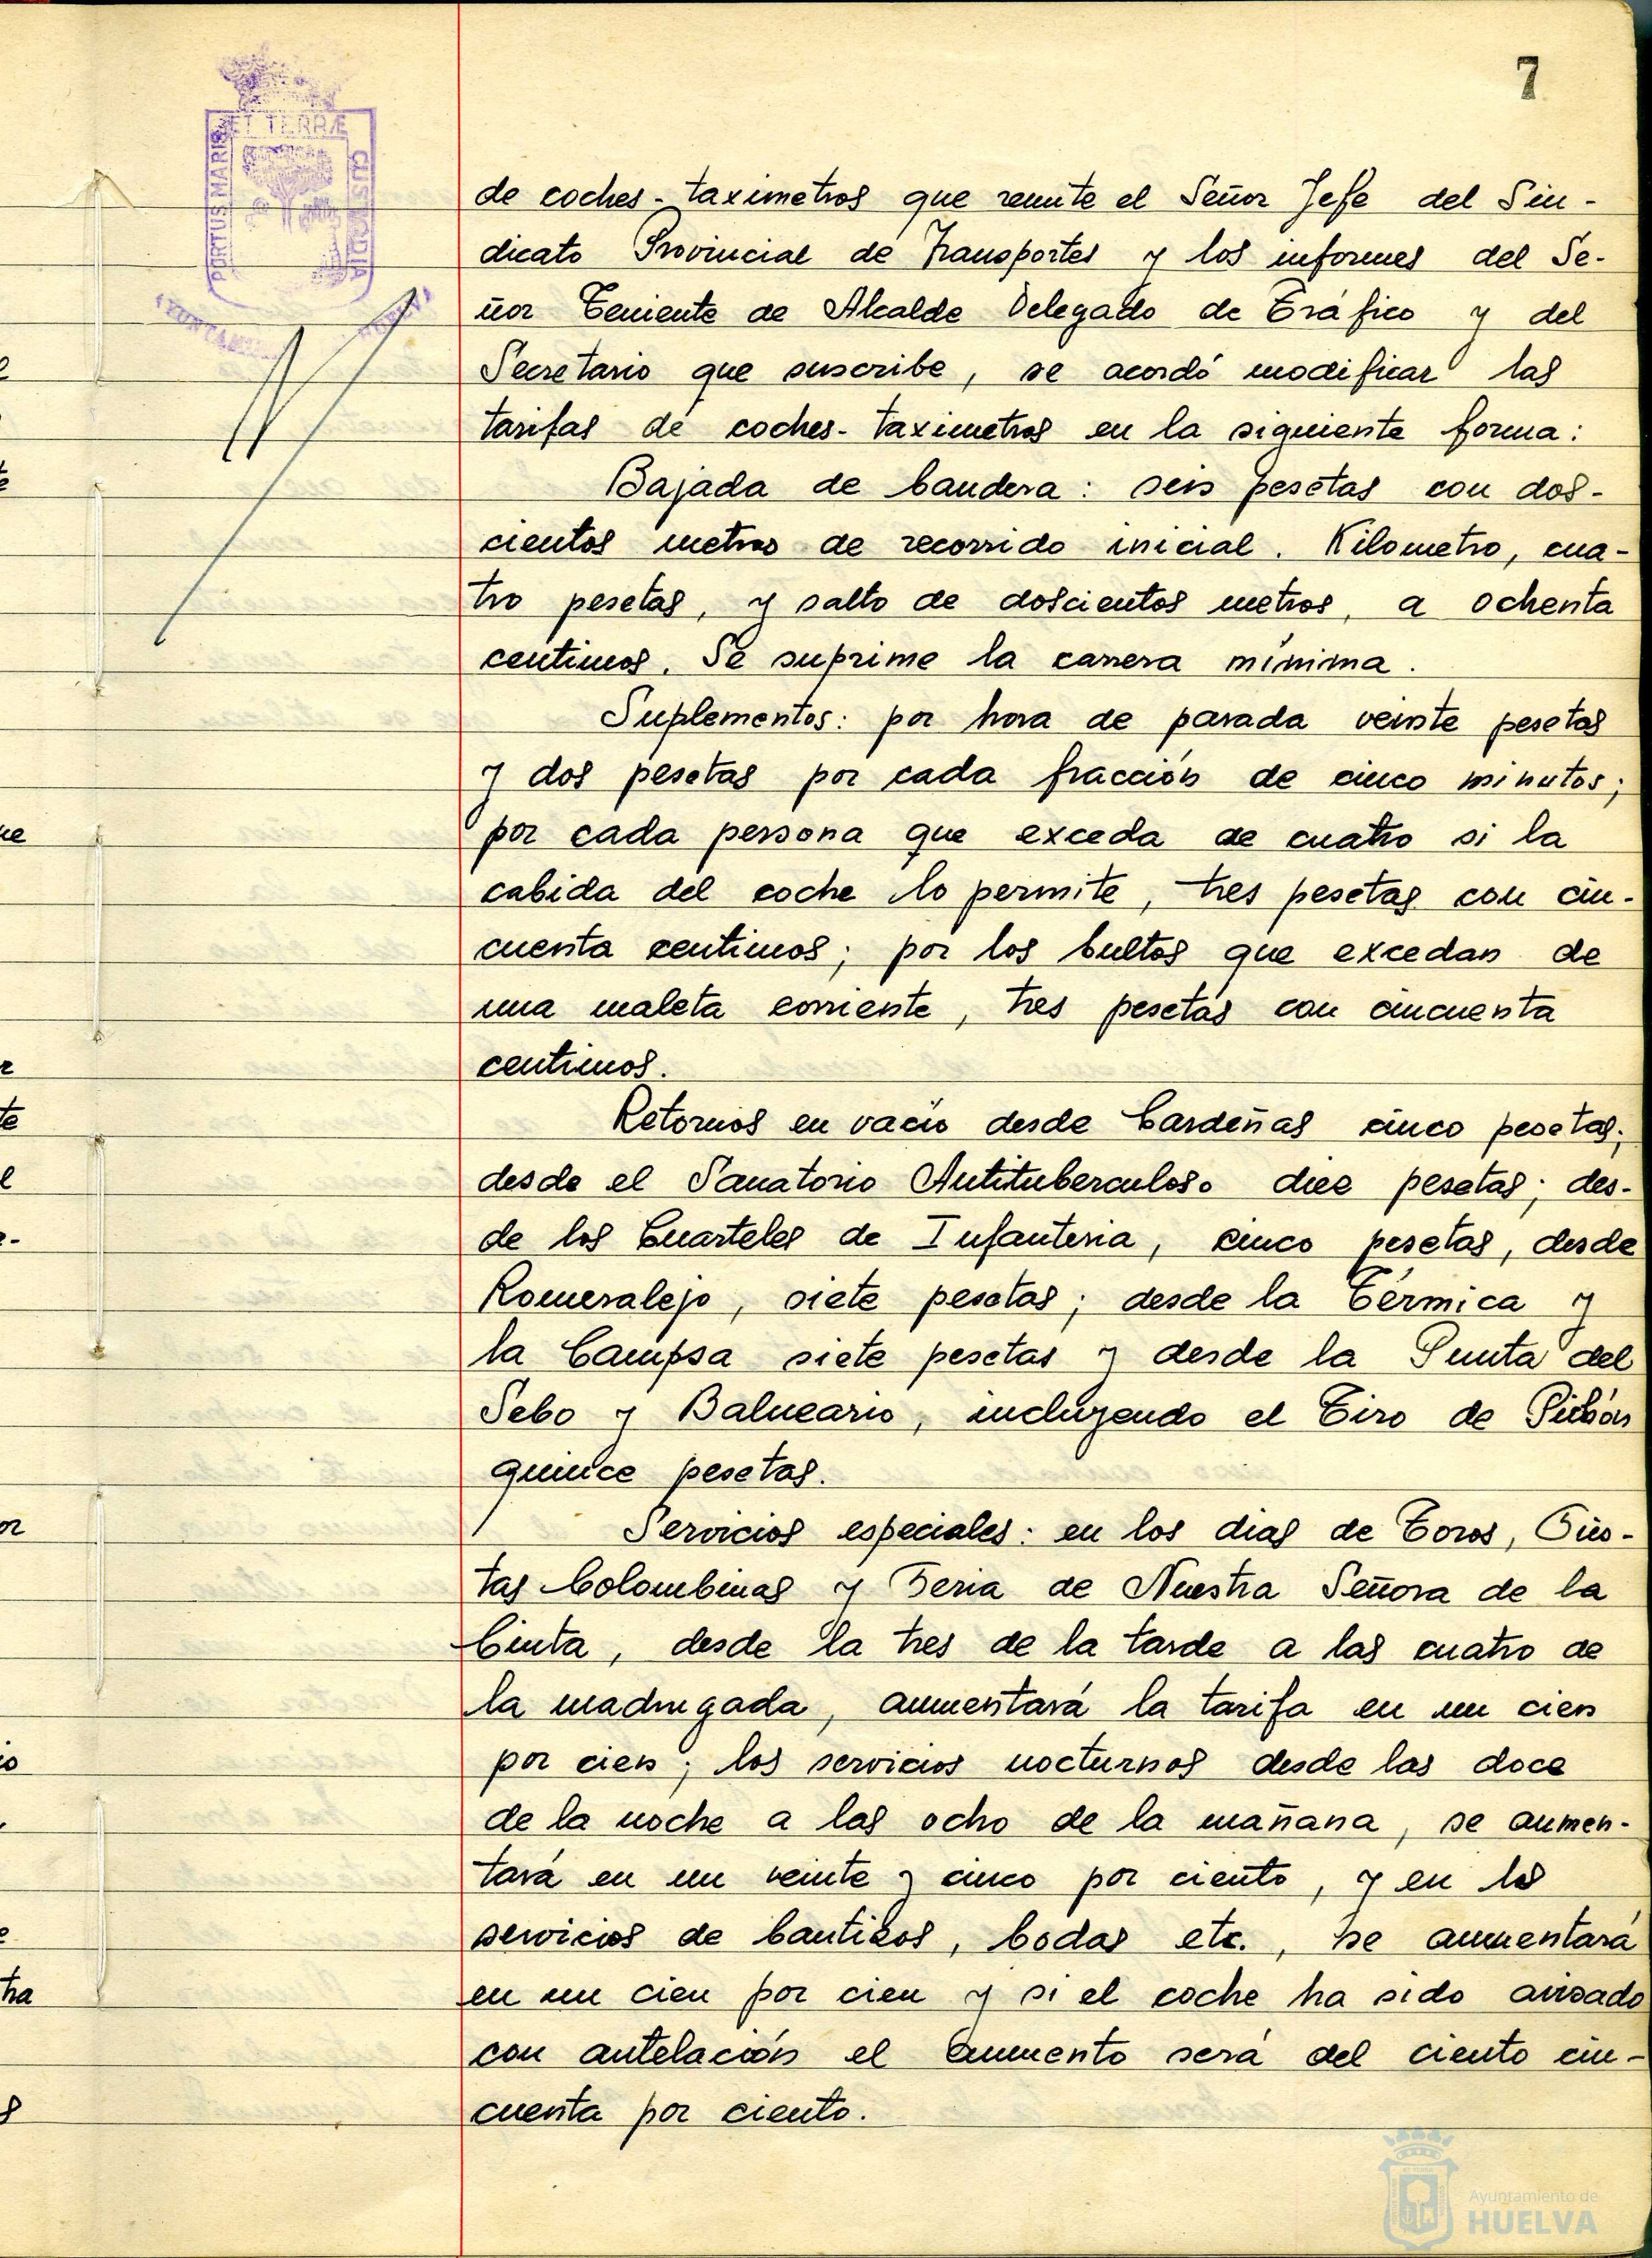 7
ET TERRÆ
PORTUS MARIS
CUSTODIA
de coches-taximetros que remite el Señor Jefe del Sin-
dicato Provincial de Transportes y los informes del Se-
ñor Teniente de Alcalde Delegado de Tráfico y del
Secretario que suscribe, se acordó modificar las
tarifas de coches-taximetros en la siguiente forma:
Bajada de bandera: seis pesetas con dos-
cientos metros de recorrido inicial. Kilometro, cua-
tro pesetas, y salto de doscientos metros, a ochenta
centimos. Se suprime la carrera mínima.
Suplementos: por hora de parada veinte pesetas
y dos pesetas por cada fracción de cinco minutos;
por cada persona que exceda de cuatro si la
cabida del coche lo permite, tres pesetas con cin-
cuenta centimos; por los bultos que excedan de
una maleta corriente, tres pesetas con cincuenta
centimos.
Retornos en vacio desde Cardeñas cinco pesetas;
desde el Sanatorio Antituberculoso diez pesetas; des-
de los Cuarteles de Infanteria, cinco pesetas, desde
Romeralejo, siete pesetas; desde la Térmica y
la Campsa siete pesetas y desde la Punta del
Sebo y Balneario, incluyendo el Tiro de Pichón
quince pesetas.
Servicios especiales: en los dias de Toros, Fies-
tas Colombinas y Feria de Nuestra Señora de la
Cinta, desde la tres de la tarde a las cuatro de
la madrugada, aumentará la tarifa en un cien
por cien; los servicios nocturnos desde las doce
de la noche a las ocho de la mañana, se aumen-
tará en un veinte y cinco por ciento, y en los
servicios de bautizos, bodas etc., se aumentará
en un cien por cien y si el coche ha sido avisado
con antelación el aumento será del ciento cin-
cuenta por ciento.
Ayuntamiento de
HUELVA